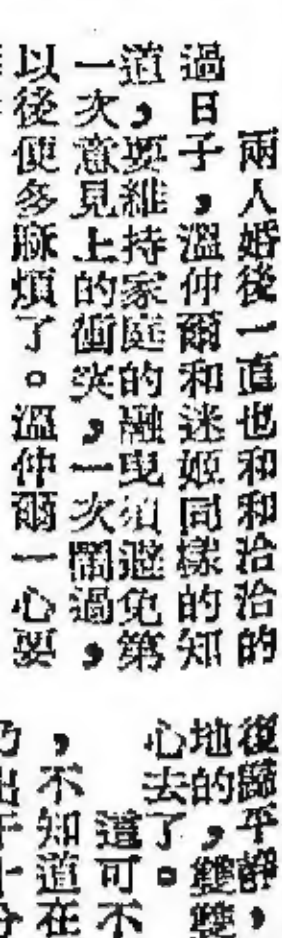 兩人婚後一直也和和洽洽的
過日子,溫仲爾和迷姬同樣的知
道,要維持家庭的融曳須避免第
一次,意見上的衝突,一次鬧過,
以後便多麻煩了。溫仲爾一心要
復歸平靜,
地的,雙雙
心去了。
這可不
,不知道在